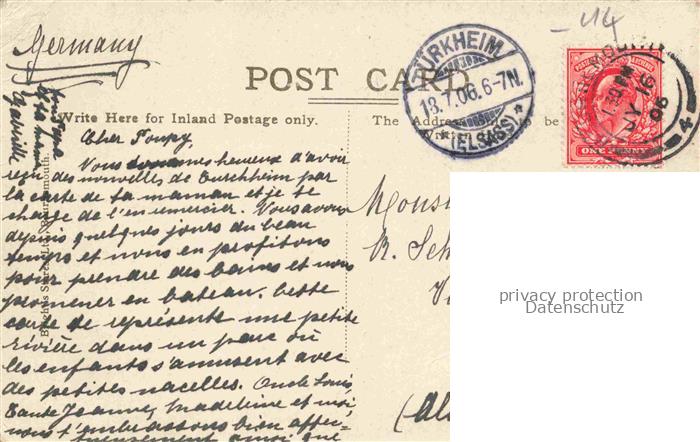 Germany
- 44
POST CARD
TÜRKHEIM
18.7.06.6-7N.
* (ELSASS) *
JY 16
06
4
ONE PENNY
Write Here for Inland Postage only.
The Address
Written
Gabrielle
Cher Toupy,
Nous sommes heureux d'avoir
reçu des nouvelles de Turckheim par
la carte de ta maman et je te
charge de l'en remercier. Nous avons
depuis quelques jours du beau
temps et nous en profitons
pour prendre des bains et nous
promener en bateau. Cette
carte te représente une petite
rivière dans un parc où
les enfants s'amusent avec
des petites nacelles. Oncle Louis
Tante Jeanne, Madeleine et moi
nous t'embrassons bien affec-
tueusement ainsi que
Monsi
R. Sch
(Als
privacy protection
Datenschutz